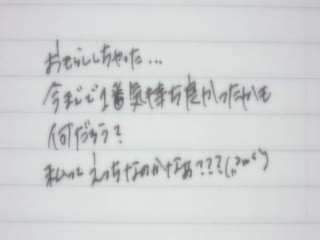 おもらししちゃった…
今までで1番気持ち良かったかも
何だろう?
私ってえっちなのかなぁ???(,,>ω<)